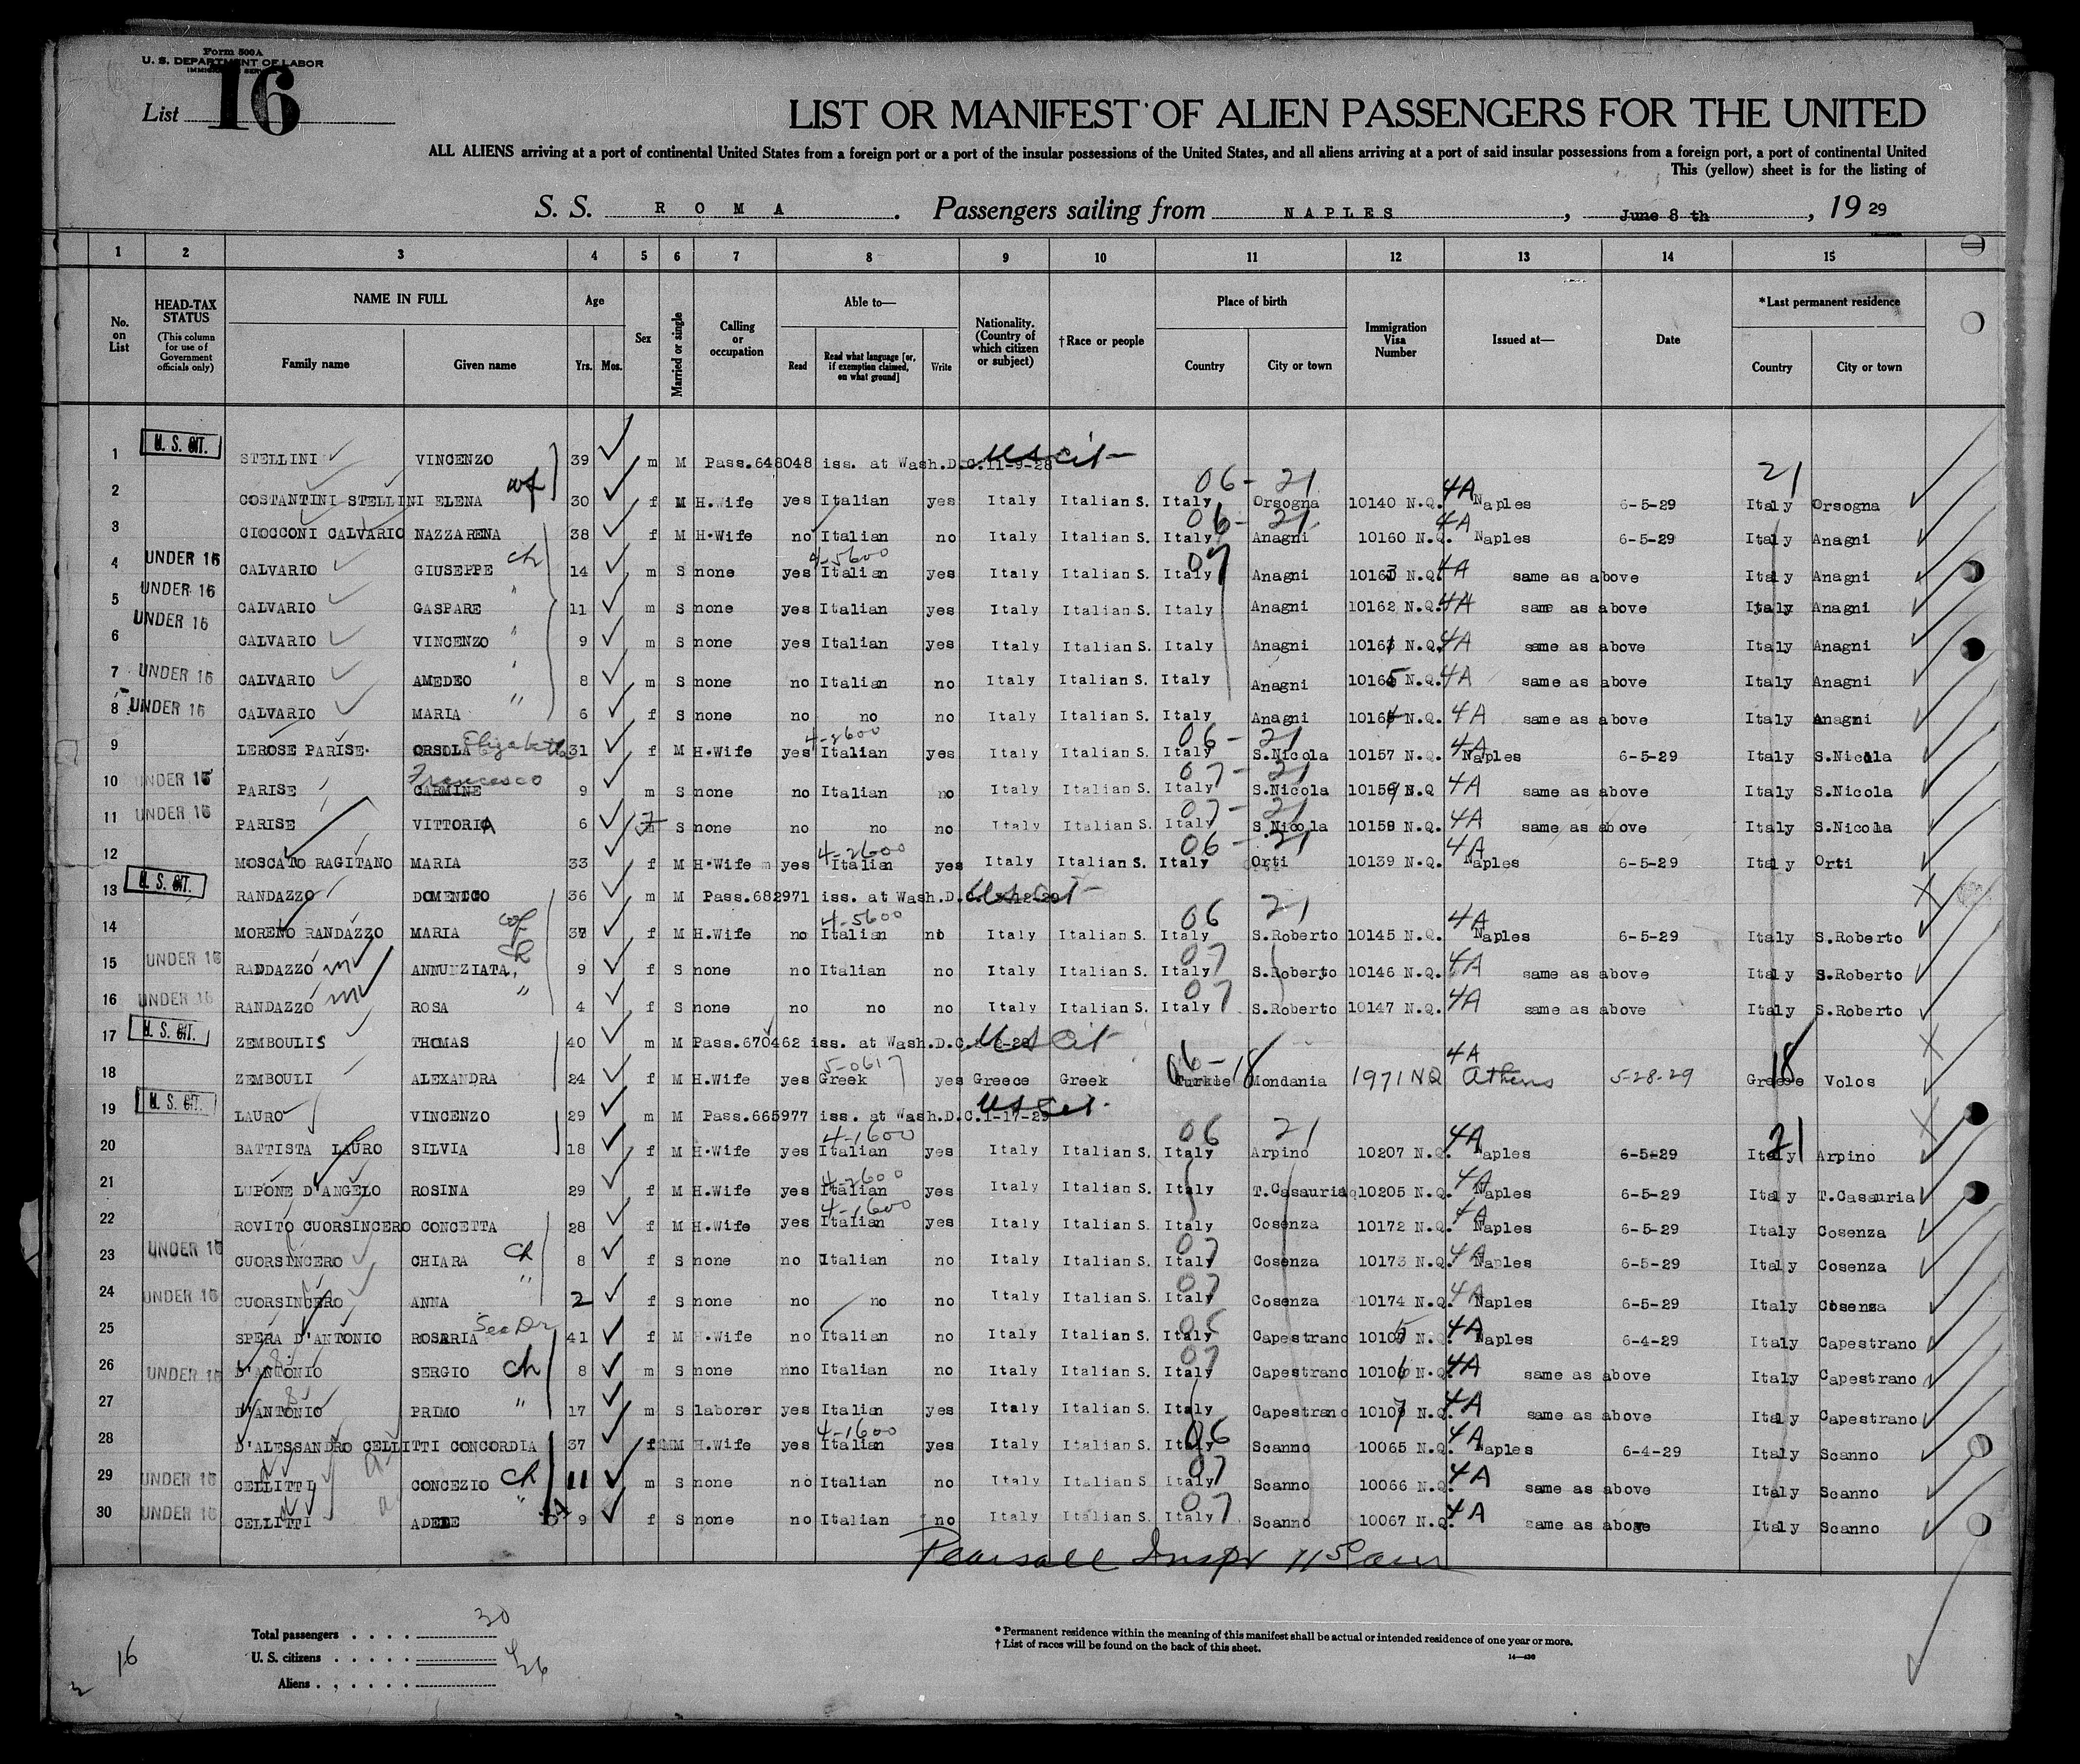 Form 500A
U. S. DEPARTMENT OF LABOR
List 16
LIST OR MANIFEST OF ALIEN PASSENGERS FOR THE UNITED
ALL ALIENS arriving at a port of continental United States from a foreign port or a port of the insular possessions of the United States, and all aliens arriving at a port of said insular possessions from a foreign port, a port of continental United
This (yellow) sheet is for the listing of
S. S. ROMA. Passengers sailing from NAPLES, June 8 th, 19 29
1 2 3 4 5 6 7 8 9 10 11 12 13 14 15
No. on List
HEAD-TAX STATUS (This column for use of Government officials only)
NAME IN FULL Family name Given name
Age Yrs. Mos.
Sex
Married or single
Calling or occupation
Able to— Read Read what language [or, if exemption claimed, on what ground] Write
Nationality. (Country of which citizen or subject)
†Race or people
Place of birth Country City or town
Immigration Visa Number
Issued at—
Date
*Last permanent residence Country City or town
1 U. S. CIT. STELLINI VINCENZO 39 m M Pass.648048 iss. at Wash.D.C.11-9-28 US Cit
2 COSTANTINI STELLINI ELENA wf 30 f M H.Wife yes Italian yes Italy Italian S. Italy 06-21 Orsogna 10140 N.Q. 4A Naples 6-5-29 Italy 21 Orsogna
3 CIOCCONI CALVARIO NAZZARENA 38 f M H.Wife no Italian no Italy Italian S. Italy 06-21 Anagni 10160 N.Q. 4A Naples 6-5-29 Italy Anagni
4 UNDER 16 CALVARIO GIUSEPPE ch 14 m S none yes 4-5600 Italian yes Italy Italian S. Italy 07 Anagni 10163 N.Q. 4A same as above Italy Anagni
5 UNDER 16 CALVARIO GASPARE " 11 m S none yes Italian yes Italy Italian S. Italy Anagni 10162 N.Q. 4A same as above Italy Anagni
6 UNDER 16 CALVARIO VINCENZO " 9 m S none yes Italian yes Italy Italian S. Italy Anagni N.Q. 4A same as above Italy Anagni
7 UNDER 16 CALVARIO AMEDEO " 8 m S none no Italian no Italy Italian S. Italy Anagni 10165 N.Q. 4A same as above Italy Anagni
8 UNDER 16 CALVARIO MARIA " 6 f S none no no no Italy Italian S. Italy Anagni N.Q. 4A same as above Italy Anagni
9 LEROSE PARISE. ORSOLA Elizabetta 31 f M H.Wife yes 4-2600 Italian yes Italy Italian S. Italy 06-21 S.Nicola 10157 N.Q. 4A Naples 6-5-29 Italy S.Nicola
10 UNDER 16 PARISE CARMINE Francesco 9 m S none no Italian no Italy Italian S. Italy 07-21 S.Nicola 10159 N.Q 4A same as above Italy S.Nicola
11 UNDER 16 PARISE VITTORIA 6 f S none no no no Italy Italian S. Italy 07-21 S.Nicola 10158 N.Q. 4A same as above Italy S.Nicola
12 MOSCATO RAGITANO MARIA 33 f M H.Wife yes 4-2600 Italian yes Italy Italian S. Italy 06-21 Orti 10139 N.Q. 4A Naples 6-5-29 Italy Orti
13 U. S. CIT. RANDAZZO DOMENICO 36 m M Pass.682971 iss. at Wash.D.C. US Cit
14 MORENO RANDAZZO MARIA wf f M H.Wife no 4-5600 Italian no Italy Italian S. Italy 06 21 S.Roberto 10145 N.Q. 4A Naples 6-5-29 Italy S.Roberto
15 UNDER 16 RANDAZZO ANNUNZIATA ch 9 f S none no Italian no Italy Italian S. Italy 07 S.Roberto 10146 N.Q. 4A same as above Italy S.Roberto
16 UNDER 16 RANDAZZO ROSA " 4 f S none no no no Italy Italian S. Italy 07 S.Roberto 10147 N.Q. 4A same as above Italy S.Roberto
17 U. S. CIT. ZEMBOULIS THOMAS 40 m M Pass.670462 iss. at Wash.D.C. US Cit
18 ZEMBOULI ALEXANDRA 24 f M H.Wife yes 5-0617 Greek yes Greece Greek Turkie 06-18 Mondania 1971 NQ 4A Athens 5-28-29 Greece 18 Volos
19 U. S. CIT. LAURO VINCENZO 29 m M Pass.665977 iss. at Wash.D.C.1-17-29 US Cit.
20 BATTISTA LAURO SILVIA 18 f M H.Wife yes 4-1600 Italian yes Italy Italian S. Italy 06 21 Arpino 10207 N.Q. 4A Naples 6-5-29 Italy 21 Arpino
21 LUPONE D'ANGELO ROSINA 29 f M H.Wife yes 4-2600 Italian yes Italy Italian S. Italy T.Casauria 10205 N.Q. 4A Naples 6-5-29 Italy T.Casauria
22 ROVITO CUORSINCERO CONCETTA 28 f M H.Wife yes 4-1600 Italian yes Italy Italian S. Italy Cosenza 10172 N.Q. 4A Naples 6-5-29 Italy Cosenza
23 UNDER 16 CUORSINCERO CHIARA ch 8 f S none no Italian no Italy Italian S. Italy 07 Cosenza 10173 N.Q. 4A Naples 6-5-29 Italy Cosenza
24 UNDER 16 CUORSINCERO ANNA " 2 f S none no no no Italy Italian S. Italy 07 Cosenza 10174 N.Q. 4A Naples 6-5-29 Italy Cosenza
25 SPERA D'ANTONIO ROSARIA 41 f M H.Wife no Italian no Italy Italian S. Italy 06 Capestrano 10105 N.Q. 4A Naples 6-4-29 Italy Capestrano
26 UNDER 16 D'ANTONIO SERGIO ch 8 m S none nno Italian no Italy Italian S. Italy 07 Capestrano 10106 N.Q. 4A same as above Italy Capestrano
27 D'ANTONIO PRIMO " 17 m S laborer yes Italian yes Italy Italian S. Italy Capestrano 10107 N.Q. 4A same as above Italy Capestrano
28 D'ALESSANDRO CELLITTI CONCORDIA 37 f M H.Wife yes 4-1600 Italian yes Italy Italian S. Italy 06 Scanno 10065 N.Q. 4A Naples 6-4-29 Italy Scanno
29 UNDER 16 CELLITTI CONCEZIO ch 11 m S none no Italian no Italy Italian S. Italy 07 Scanno 10066 N.Q. 4A same as above Italy Scanno
30 UNDER 16 CELLITTI ADELE " 9 f S none no Italian no Italy Italian S. Italy 07 Scanno 10067 N.Q. 4A same as above Italy Scanno
Pearsall Inspr 11 50 am
Total passengers 30
U. S. citizens
Aliens 26
16
* Permanent residence within the meaning of this manifest shall be actual or intended residence of one year or more.
† List of races will be found on the back of this sheet.